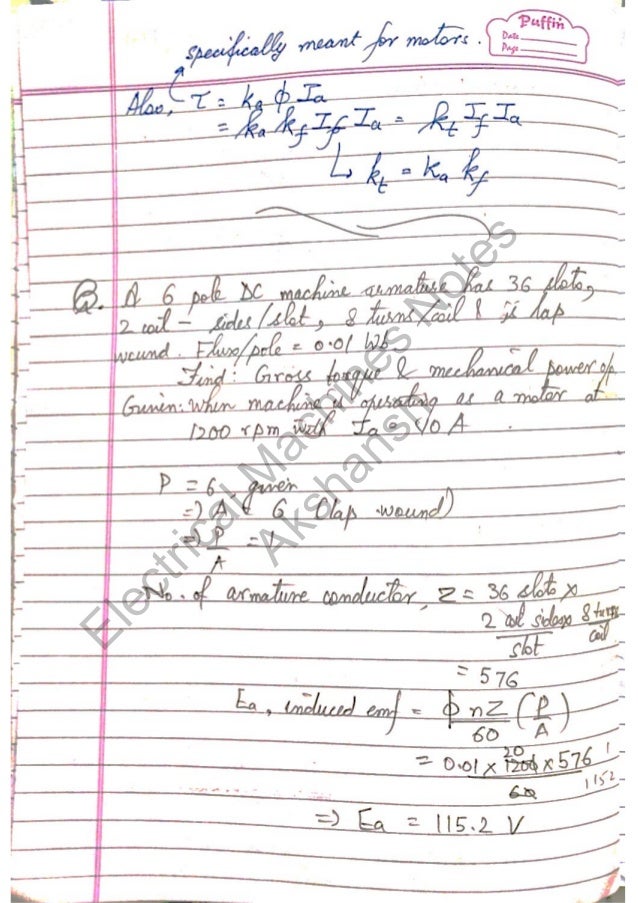 Puffin
Date
Page
specifically meant for motors.
Also, τ = ka ϕ Ia
= ka kf If Ia = kt If Ia
↳ kt = ka kf
Q. A 6 pole DC machine armature has 36 slots,
2 coil - sides/slot, 8 turns/coil & is lap
wound. Flux/pole = 0.01 Wb
Find: Gross torque & mechanical power o/p
Given: when machine is operating as a motor at
1200 rpm with Ia = A.
P = 6, given
=) A = 6 (lap wound)
=) P/A = 1
No. of armature conductor, Z = 36 slots x
2 coil sides/slot x 8 turns/coil
= 576
Ea, induced emf = ϕ n Z/60 (P/A)
= 0.01 x 1200 x 576 / 60
20
1152
=) Ea = 115.2 V
Electrical Machines Notes
Akshansh